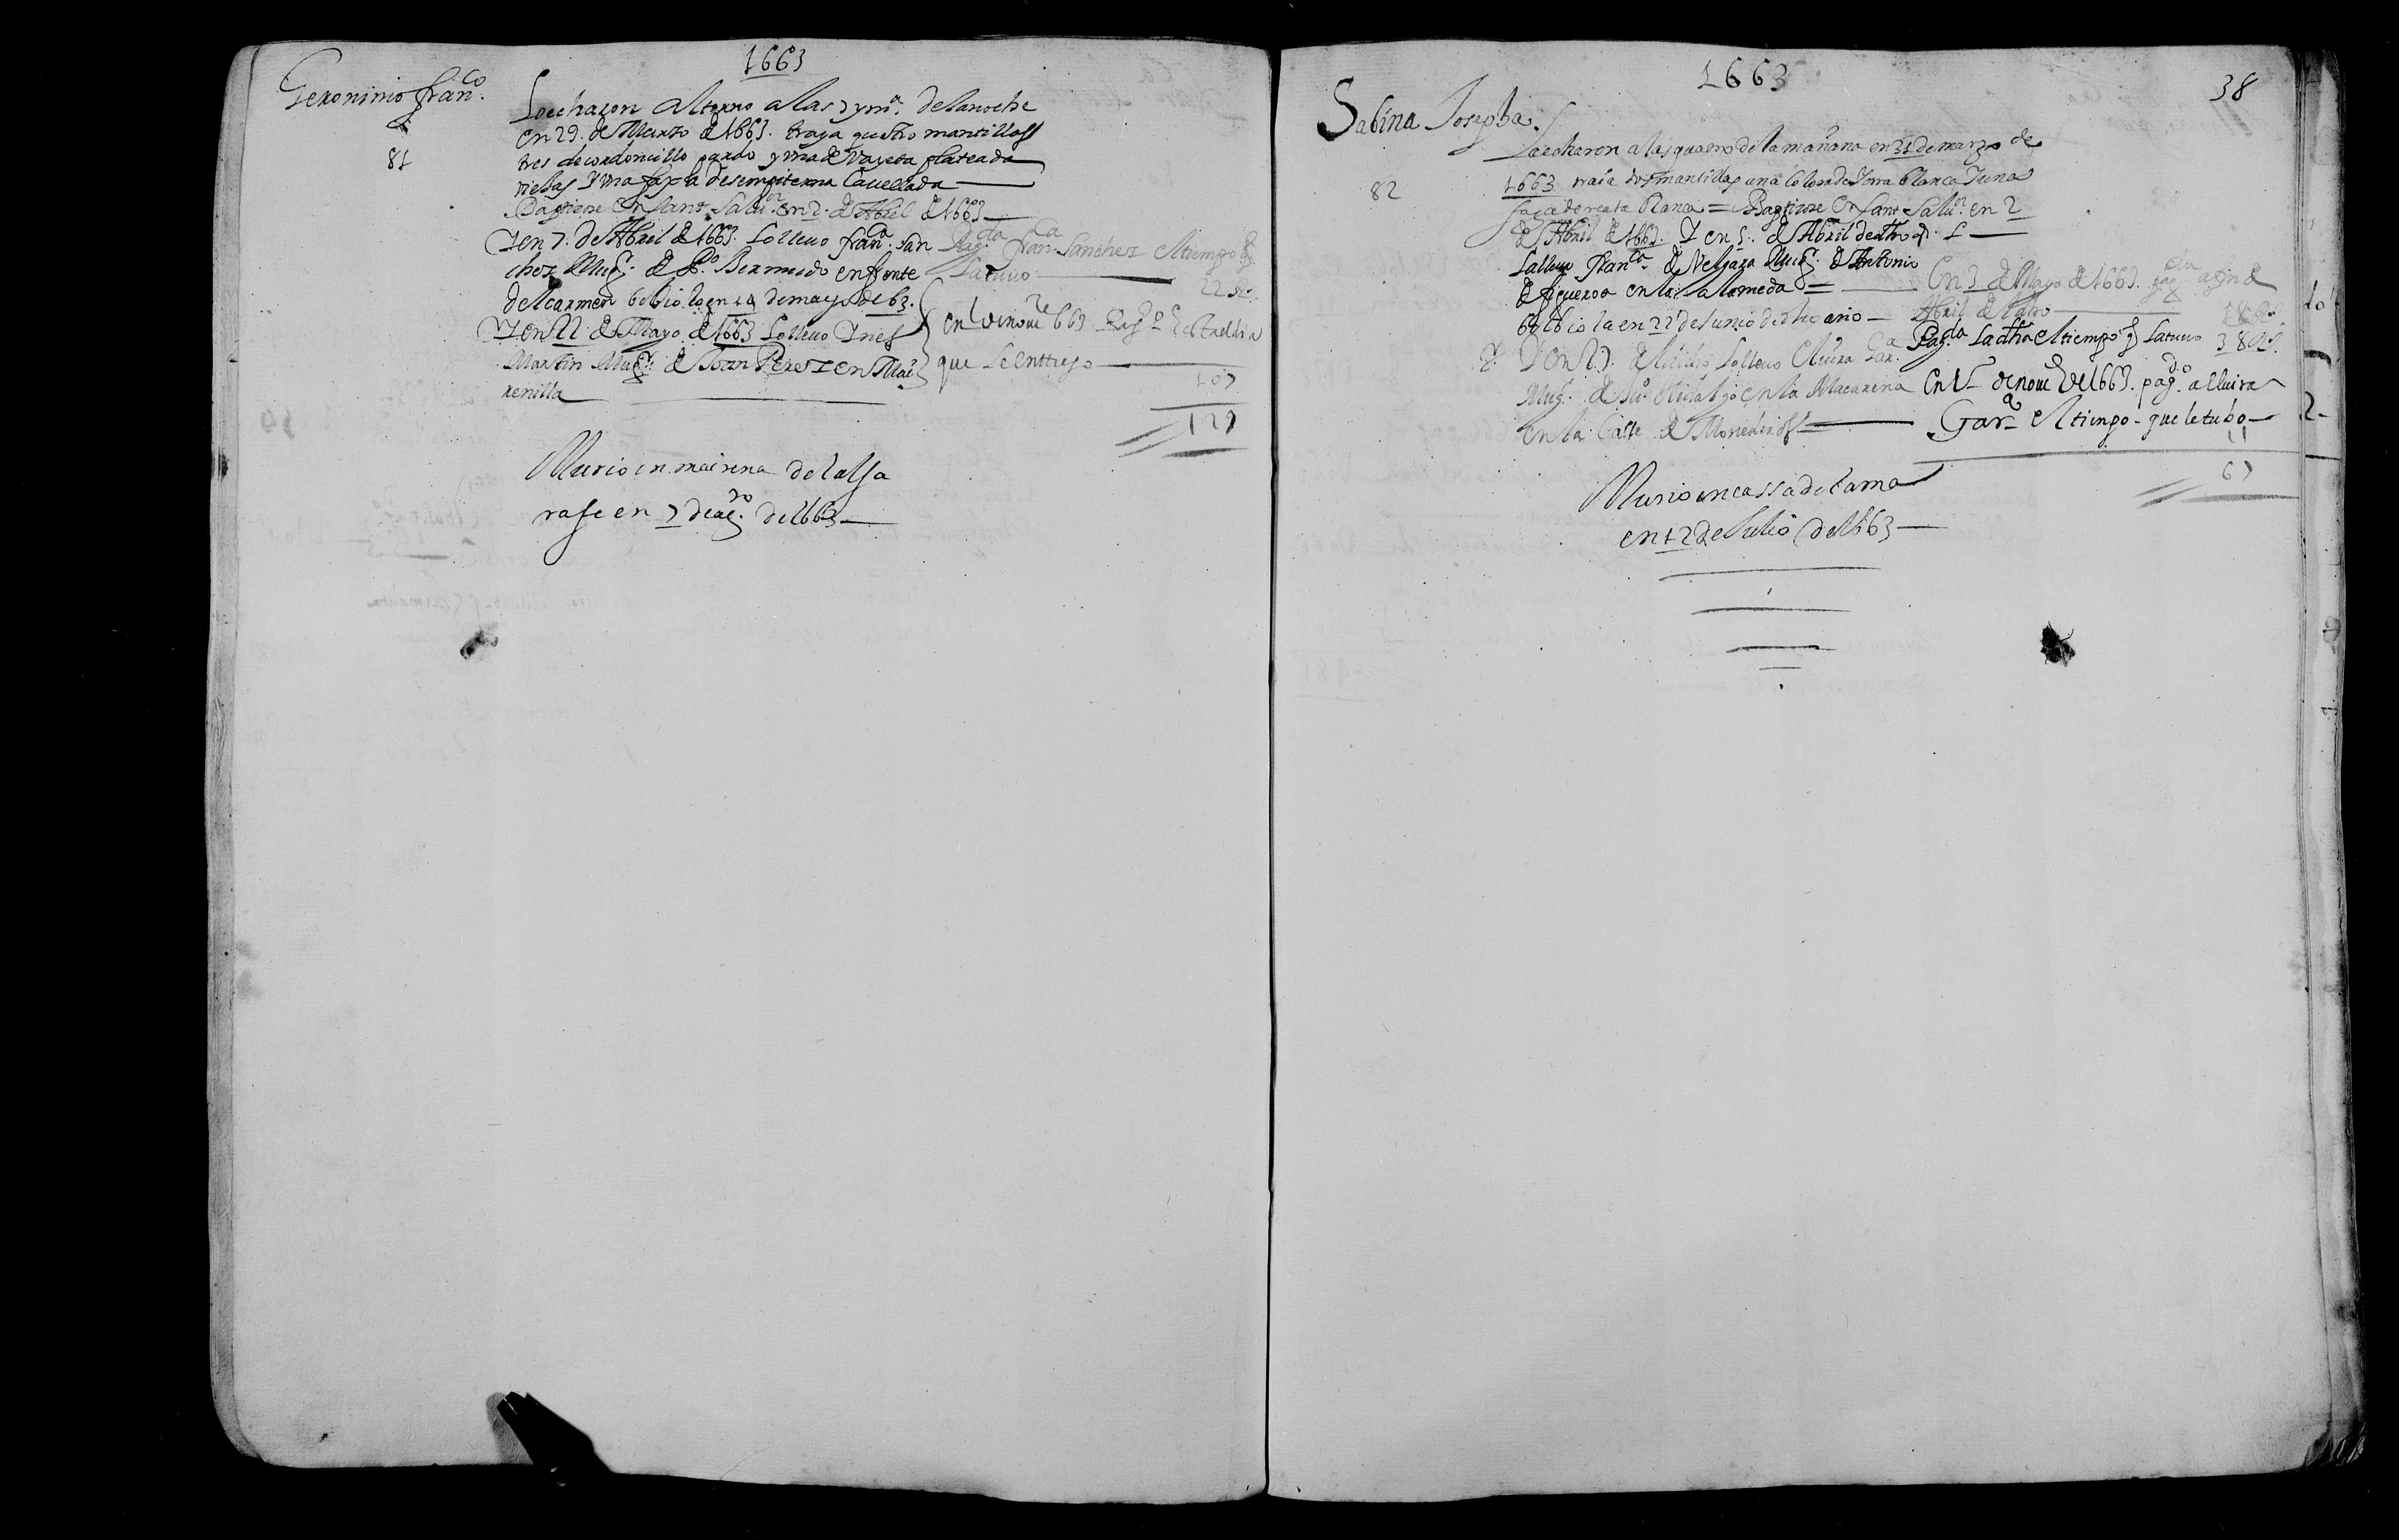 1663
Geronimo fran.co
81
Lo echaron al torno a las 7 y m.a de la noche
en 29. de Marzo de 1663. traya quatro mantillas
tres de cordoncillo pardo y vna de vayeta plateada
viejas y vna faxa de sempiterna
Baptizose en sant Salu.or en 2. de Abril de 1663
Y en 7. de Abril de 1663. Lo lleuo fran.ca san
chez Mug.r de P.o Bermudo en frente
del carmen bolbiolo en 14 de mayo de 63.
Y en 22 de Mayo de 1663 Lo lleuo Ynes
Martin Mug.r de Joan Perez en Mai
renilla
Pag.da fran.ca Sanchez el tiempo q
la tuuo 22 Rs.
en 1 de nou.e 663 Pag.o
que se enttrego
107
129
Murio en mairena del alja
rafe en 7 de ag.to de 1663
1663
38
Sabina Josepha.
82
La echaron a las quatro de la mañana en 31 de marzo de
1663 traia dos mantillas una color de blanca Y una
faja de reata blanca = Baptizose en sant Salu.or en 2
de Abril de 1663. Y en 5. de Abril de dho
La lleuo Fran.ca de Vergara Mug.r de Antonio
de figueroa en la alameda =
bolbio la en 22 de Junio de dho año
Y en 27. de dicho Lo lleuo Eluira Gar.a
Mug.r de Ju.o Hidalgo en la Macarena
en la Calle de Monederos
En 3 de Mayo de 1663. pag.da a fin de
Abril de dho 18 Rs.
Pag.da La dha el tiempo q La tuuo 38 Rs.
En 1 de nou.e de 1663. pag.do a Eluira
Gar.a el tiempo que le tubo
11
67
Murio en cassa del ama
en 12 de Julio de 1663